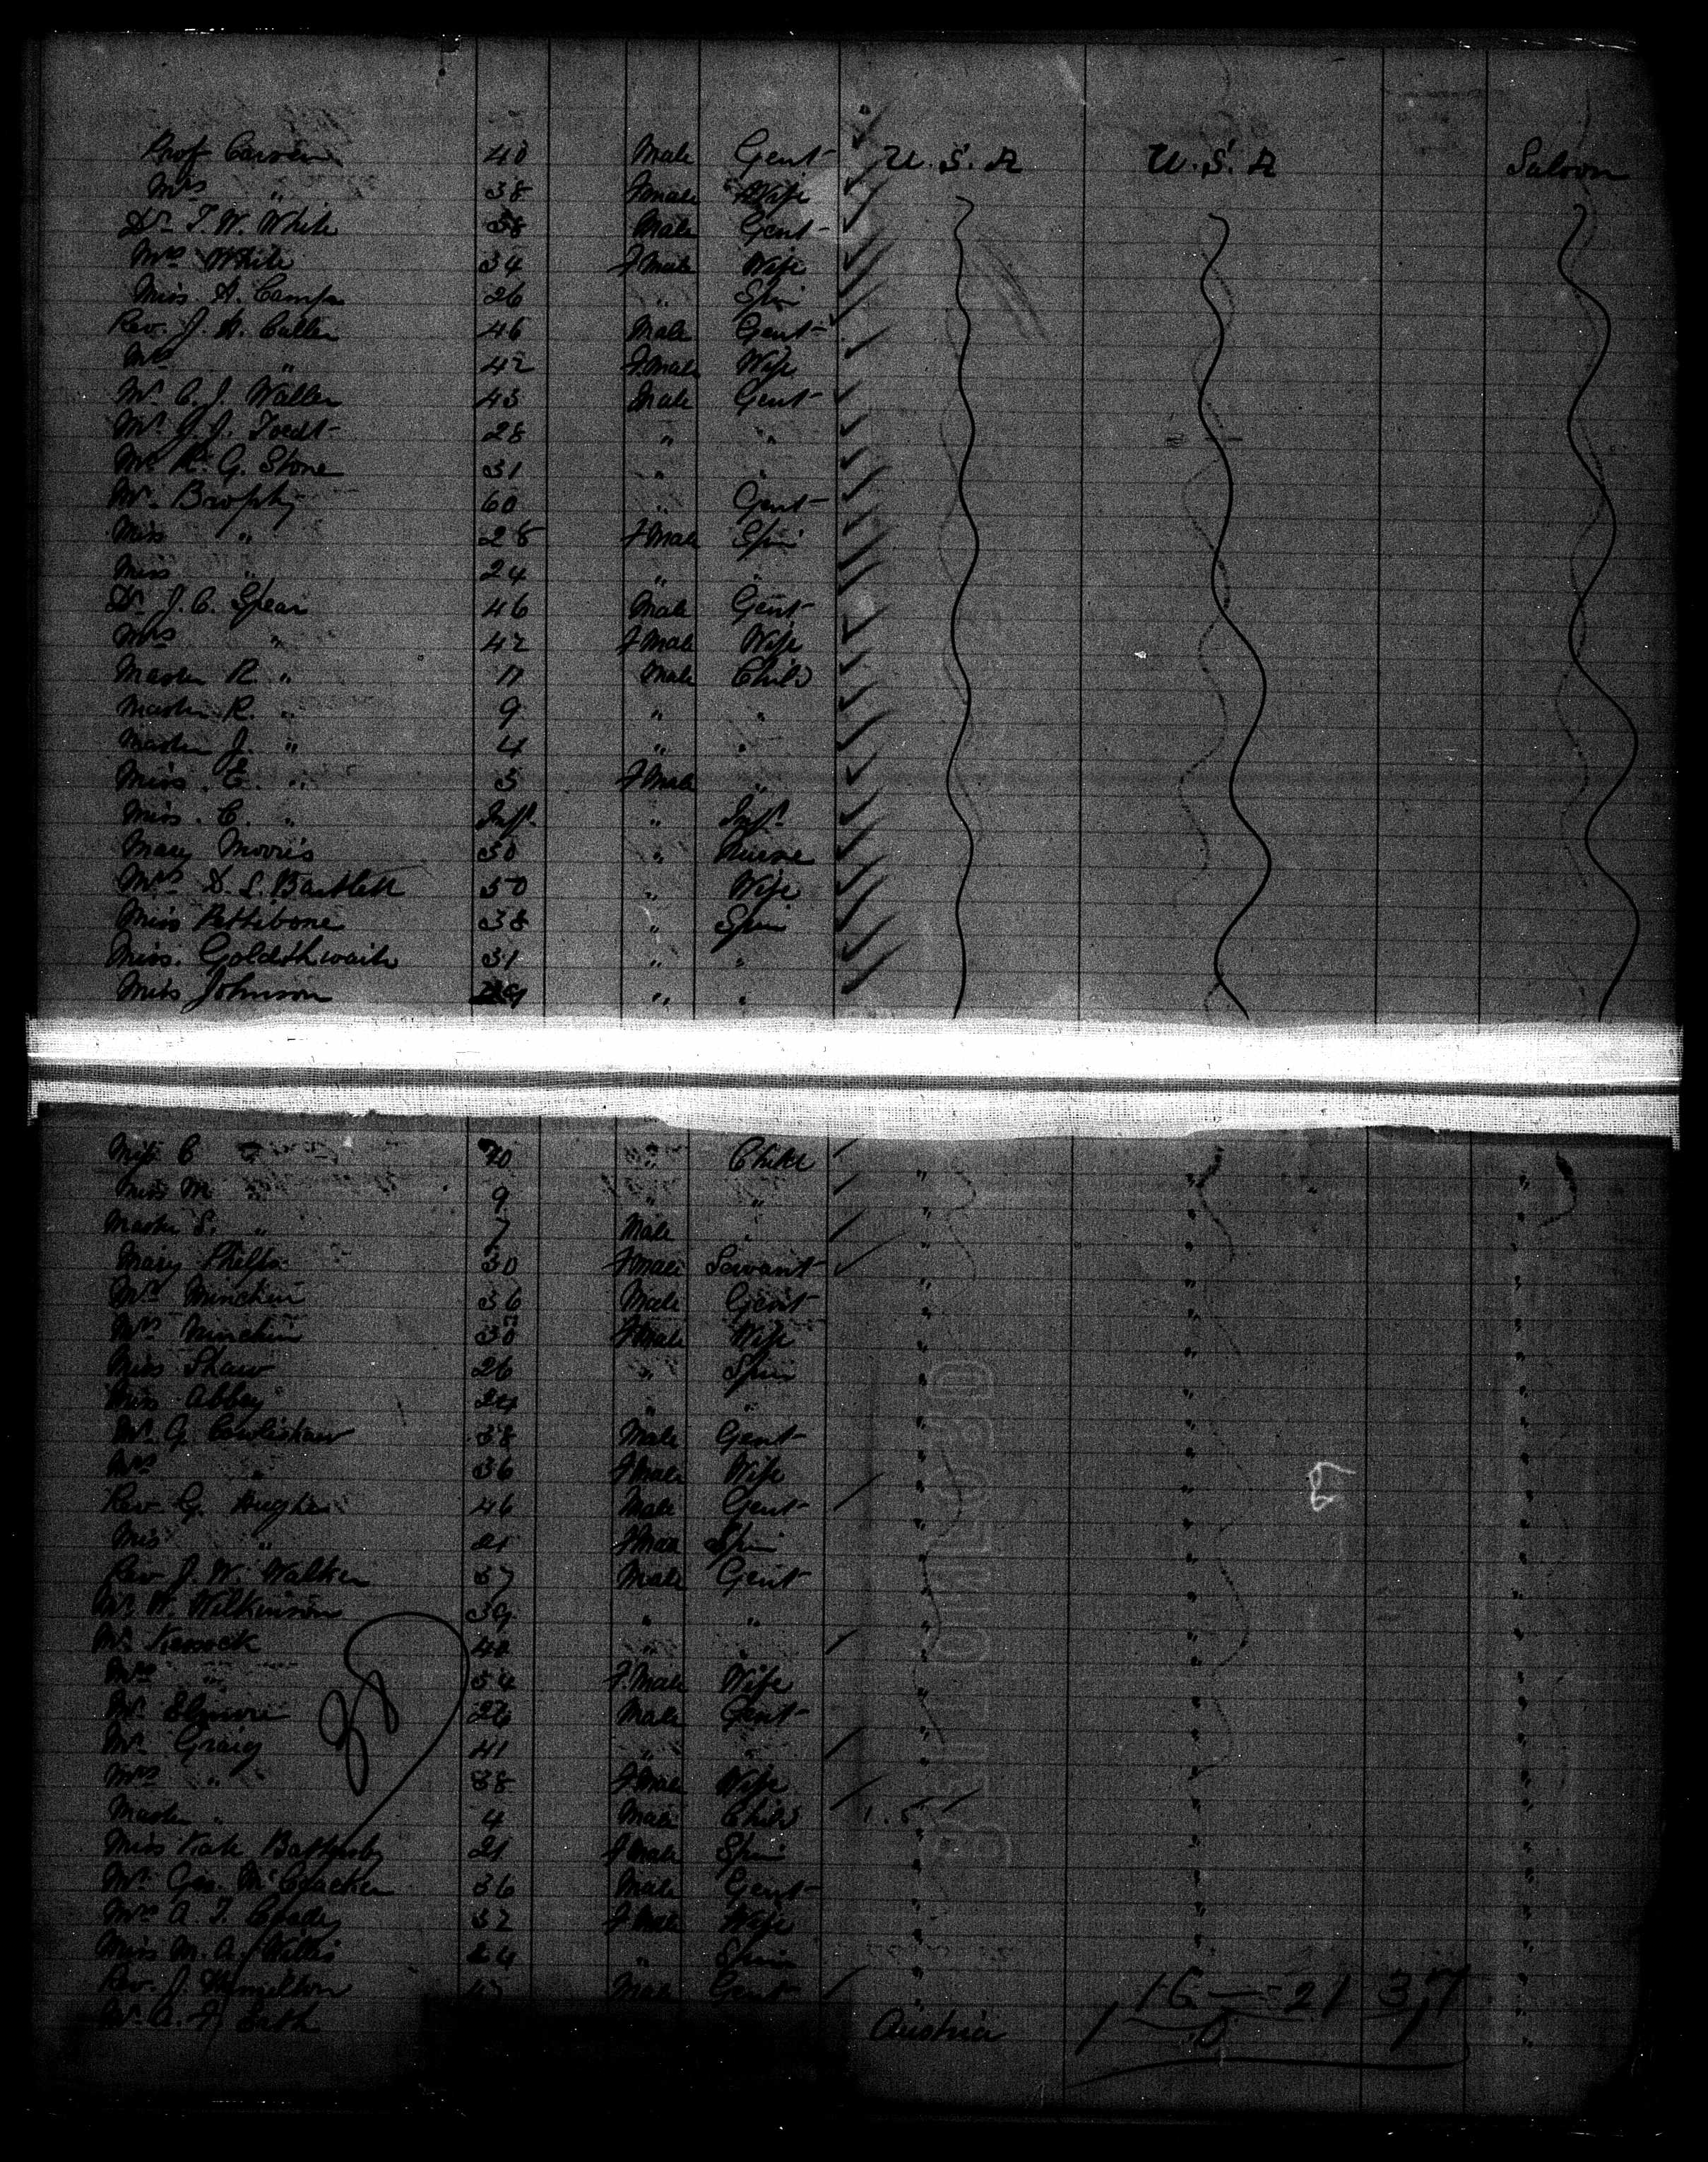 Prof Carven 40 Male Gent U.S.A U.S.A Saloon
Mrs " 38 Fmale Wife
Dr T. W. White 38 Male Gent
Mrs White 34 Fmale Wife
Miss A. Camp 26 " Spin
Rev. J. A. Cullen 46 Male Gent
Mrs " 42 Fmale Wife
Mr C. J. Waller 43 Male Gent
Mr J. J. Toedt 28 " "
Mr R. G. Stone 31 " "
Mr Brophy 60 " Gent
Miss " 28 Fmale Spin
Miss " 24 " "
Dr J. C. Spear 46 Male Gent
Mrs " 42 Fmale Wife
Master R. " 11 Male Child
Master R. " 9 " "
Master J. " 4 " "
Miss E. " 3 Fmale "
Miss C. " Inft " Inft
Mary Morris 30 " Nurse
Mrs D. L. Bartlett 50 " Wife
Miss Pettibone 38 " Spin
Miss Goldthwaite 31 " "
Miss Johnson " "
Miss C " 10 " Child " " "
Miss M " 9 " " " " "
Master S. " 7 Male " " " "
Mary Phelps 30 Fmale Servant " " "
Mr Minchin 36 Male Gent " " "
Mrs Minchin 30 Fmale Wife " " "
Miss Shaw 26 " Spin " " "
Miss Abbey 24 " " " " "
Mr G. Cowlishaw 38 Male Gent " " "
Mrs " 36 Fmale Wife " " "
Rev G. Hughes 46 Male Gent " " "
Miss " 21 Fmale Spin " " "
Rev J. W. Walker 37 Male Gent " " "
Mr W. Wilkinson 39 " " " " "
Mr Kessock 48 " " " " "
Mrs " 54 Fmale Wife " " "
Mr Elmore 26 Male Gent " " "
Mr Graig 41 " " " " "
Mrs " 38 Fmale Wife " " "
Master " 4 Male Child " " "
Miss Kate Battersby 21 Fmale Spin " " "
Mr Geo. McCracken 36 Male Gent " " "
Mrs A. T. Coady 32 Fmale Wife " " "
Miss M. A. Willis 24 " Spin " " "
Rev. J. Hamilton 47 Male Gent " 16 — 21 37
Mr A. F. Austria "